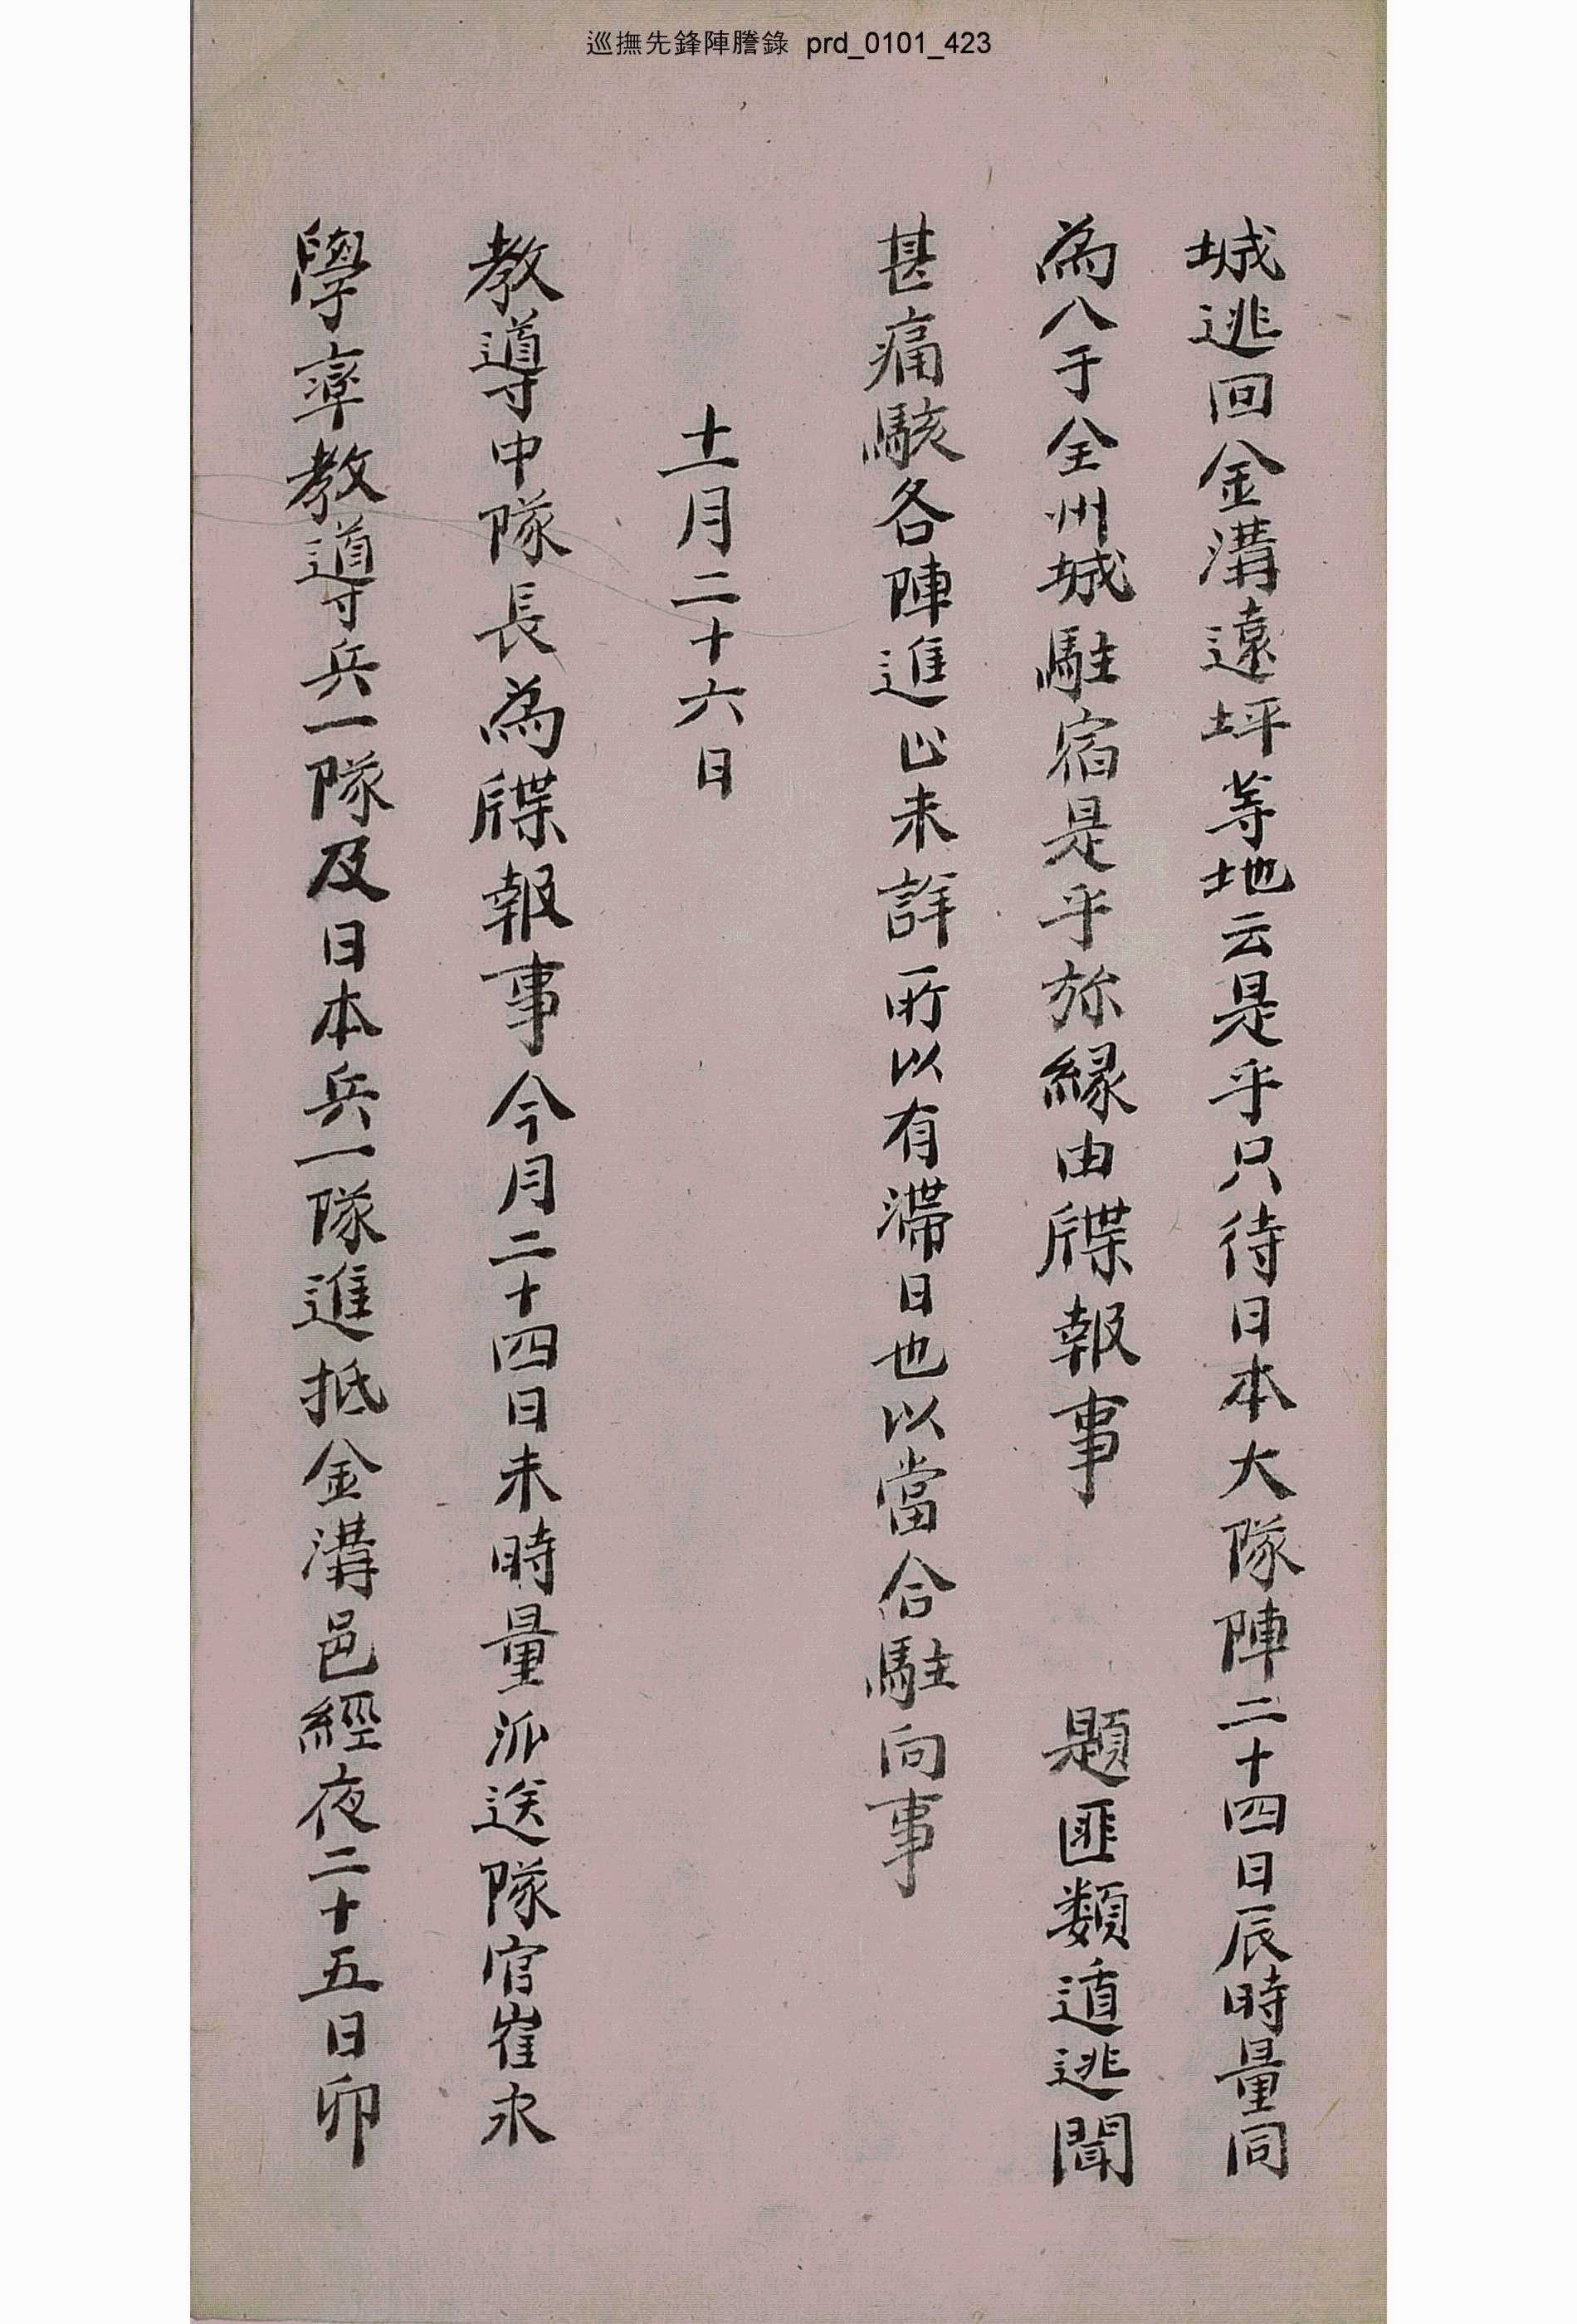 巡撫先鋒陣謄錄 prd_0101_423
城逃回金溝遠坪等地云是乎只待日本大隊陣二十四日辰時量同
為八于全州城駐宿是乎旀緣由牒報事 題匪類遁逃聞
甚痛駭各陣進止未詳所以有滯日也以當合駐向事
十一月二十六日
教導中隊長為牒報事今月二十四日未時量派送隊官崔永
學率教導兵一隊及日本兵一隊進抵金溝邑經夜二十五日卯